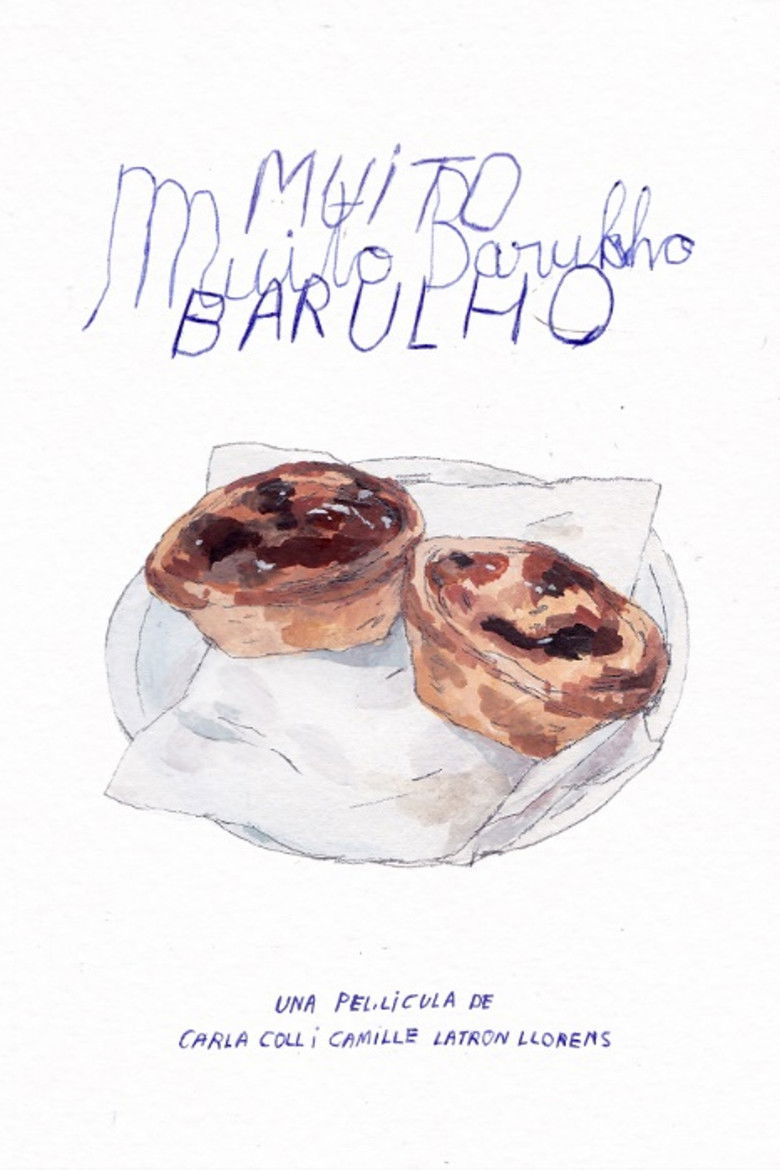 MUITO
Muito Barulho
BARULHO
UNA PEL.LÍCULA DE
CARLA COLL i CAMILLE LATRON LLORENS